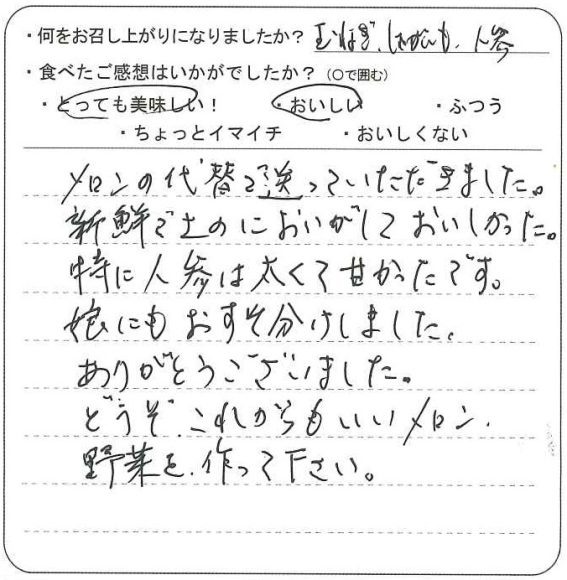 ・何をお召し上がりになりましたか？ 玉ねぎ、じゃがいも、人参
・食べたご感想はいかがでしたか？（○で囲む）
・とっても美味しい！ ・おいしい ・ふつう
・ちょっとイマイチ ・おいしくない
メロンの代替で送っていただきました。
新鮮で土のにおいがしておいしかった。
特に人参は太くて甘かったです。
娘にもおすそ分けしました。
ありがとうございました。
どうぞ、これからもいいメロン、
野菜を作って下さい。